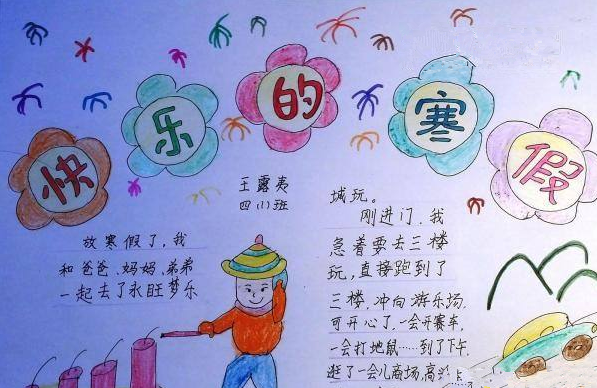 快乐的寒假
王露夷
四(1)班
放寒假了,我
和爸爸、妈妈、弟弟
一起去了永旺梦乐
城玩。
刚进门,我
急着要去三楼
玩,直接跑到了
三楼,冲向游乐场,
可开心了,一会开赛车,
一会打地鼠……到了下午,
逛了一会儿商场,高